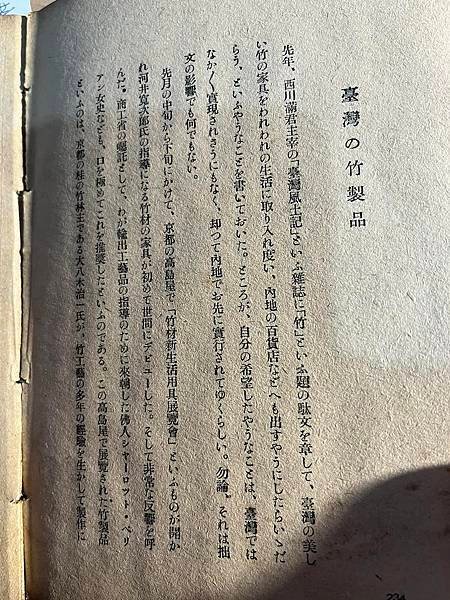 臺灣の竹製品
先年、西川滿君主宰の「臺灣風土記」といふ雜誌に「竹」といふ題の駄文を草して、臺灣の美し
い竹の家具をわれわれの生活に取り入れ度い、內地の百貨店などへも出すやうにしたらいゝだ
らう、といふやうなことを書いておいた。ところが、自分の希望したやうなことは、臺灣では
なか〱實現されさうにもなく、却つて內地でお先に實行されてゆくらしい。勿論、それは拙
文の影響でも何でもない。
先月の中旬から下旬にかけて、京都の高島屋で「竹材新生活用具展覽會」といふものが開か
れ河井寬次郎氏の指導になる竹材の家具が初めて世間にデビューした。そして非常な反響を呼
んだ。商工省の囑託として、わが輸出工藝品の指導のために來朝した佛人シャーロット・ペリ
アン女史なども、口を極めてこれを推奬したといふのである。この高島屋で展覽された竹製品
といふのは、京都の桂の竹林主である大八木治一氏が、竹工藝の多年の經驗を生かして製作に
234